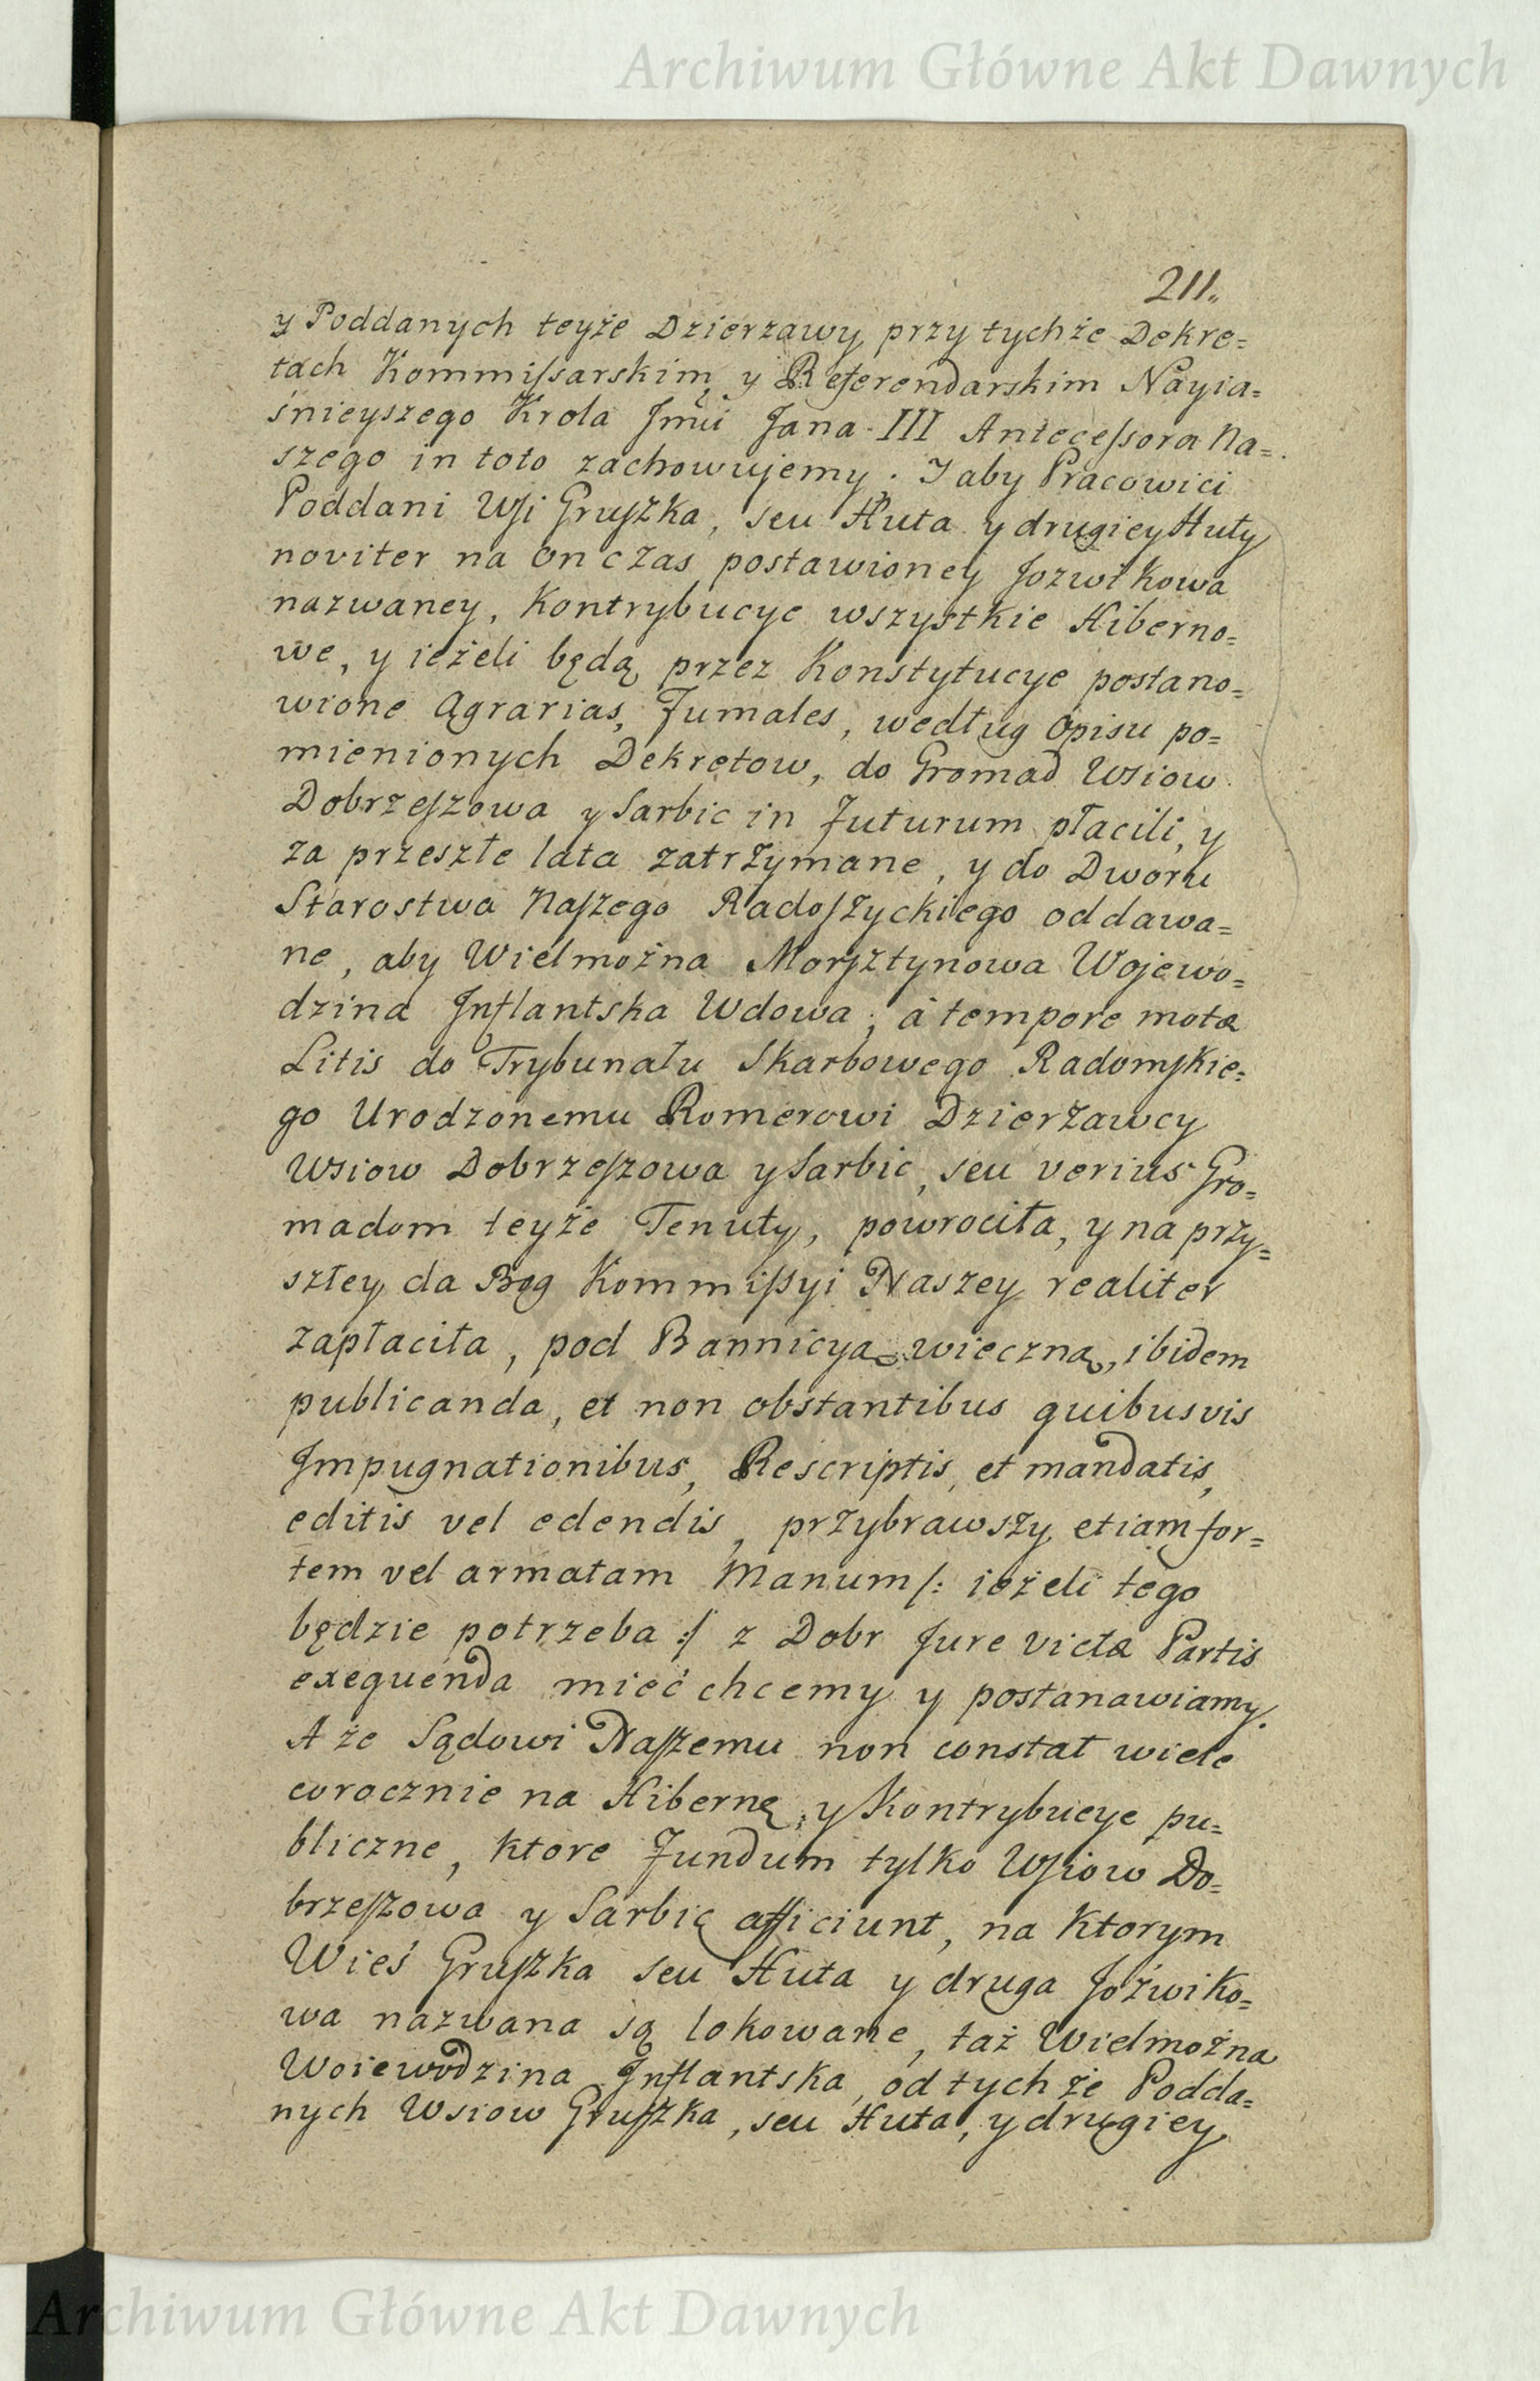 Archiwum Główne Akt Dawnych
211.
y Poddanych teyże Dzierzawy przy tychże Dekre=
tach Kommiſsarskim y Referendarskim Nayia=
śnieyszego Krola Jmći Jana III Anteceſsora Na=
szego in toto zachowujemy. I aby Pracowici
Poddani Wſi Gruſzka, seu Huta y drugiey Huty
noviter na on czas postawioney Jozwikowa
nazwaney, Kontrybucye wszystkie Hiberno=
we, y ieżeli będą przez Konstytucye postano=
wione Agrarias, Fumales, według Opisu po=
mienionych Dekretow, do Gromad Wsiow
Dobrzeſzowa y Sarbic in Futurum płacili, y
za przeszłe lata zatrzymane, y do Dworu
Starostwa Naſzego Radoſzyckiego oddawa=
ne, aby Wielmożna Morſztynowa Wojewo=
dzina Inflantska Wdowa, à tempore motæ
Litis do Trybunału Skarbowego Radomſkie=
go Urodzonemu Romerowi Dzierżawcy
Wsiow Dobrzeſzowa y Sarbic, seu verius Gro=
madom teyże Tenuty, powrociła, y na przy=
szłey da Bog Kommiſsyi Naszey realiter
zapłaciła, pod Bannicyą wieczną, ibidem
publicanda, et non obstantibus quibusvis
Impugnationibus, Rescriptis, et mandatis,
editis vel edendis, przybrawszy etiam for=
tem vel armatam Manum /: ieżeli tego
będzie potrzeba :/ z Dobr Jure victæ Partis
exequenda mieć chcemy y postanawiamy.
A że Sądowi Naſzemu non constat wiele
corocznie na Hibernę, y Kontrybucye pu=
bliczne, ktore Fundum tylko Wſiow Do=
brzeſzowa y Sarbic afficiunt, na Ktorym
Wieś Gruſzka seu Huta y druga Joźwiko=
wa nazwana są lokowane, taż Wielmożna
Woiewodzina Inflantska, od tychże Podda=
nych Wsiow Gruſzka, seu Huta, y drugiey
Archiwum Główne Akt Dawnych